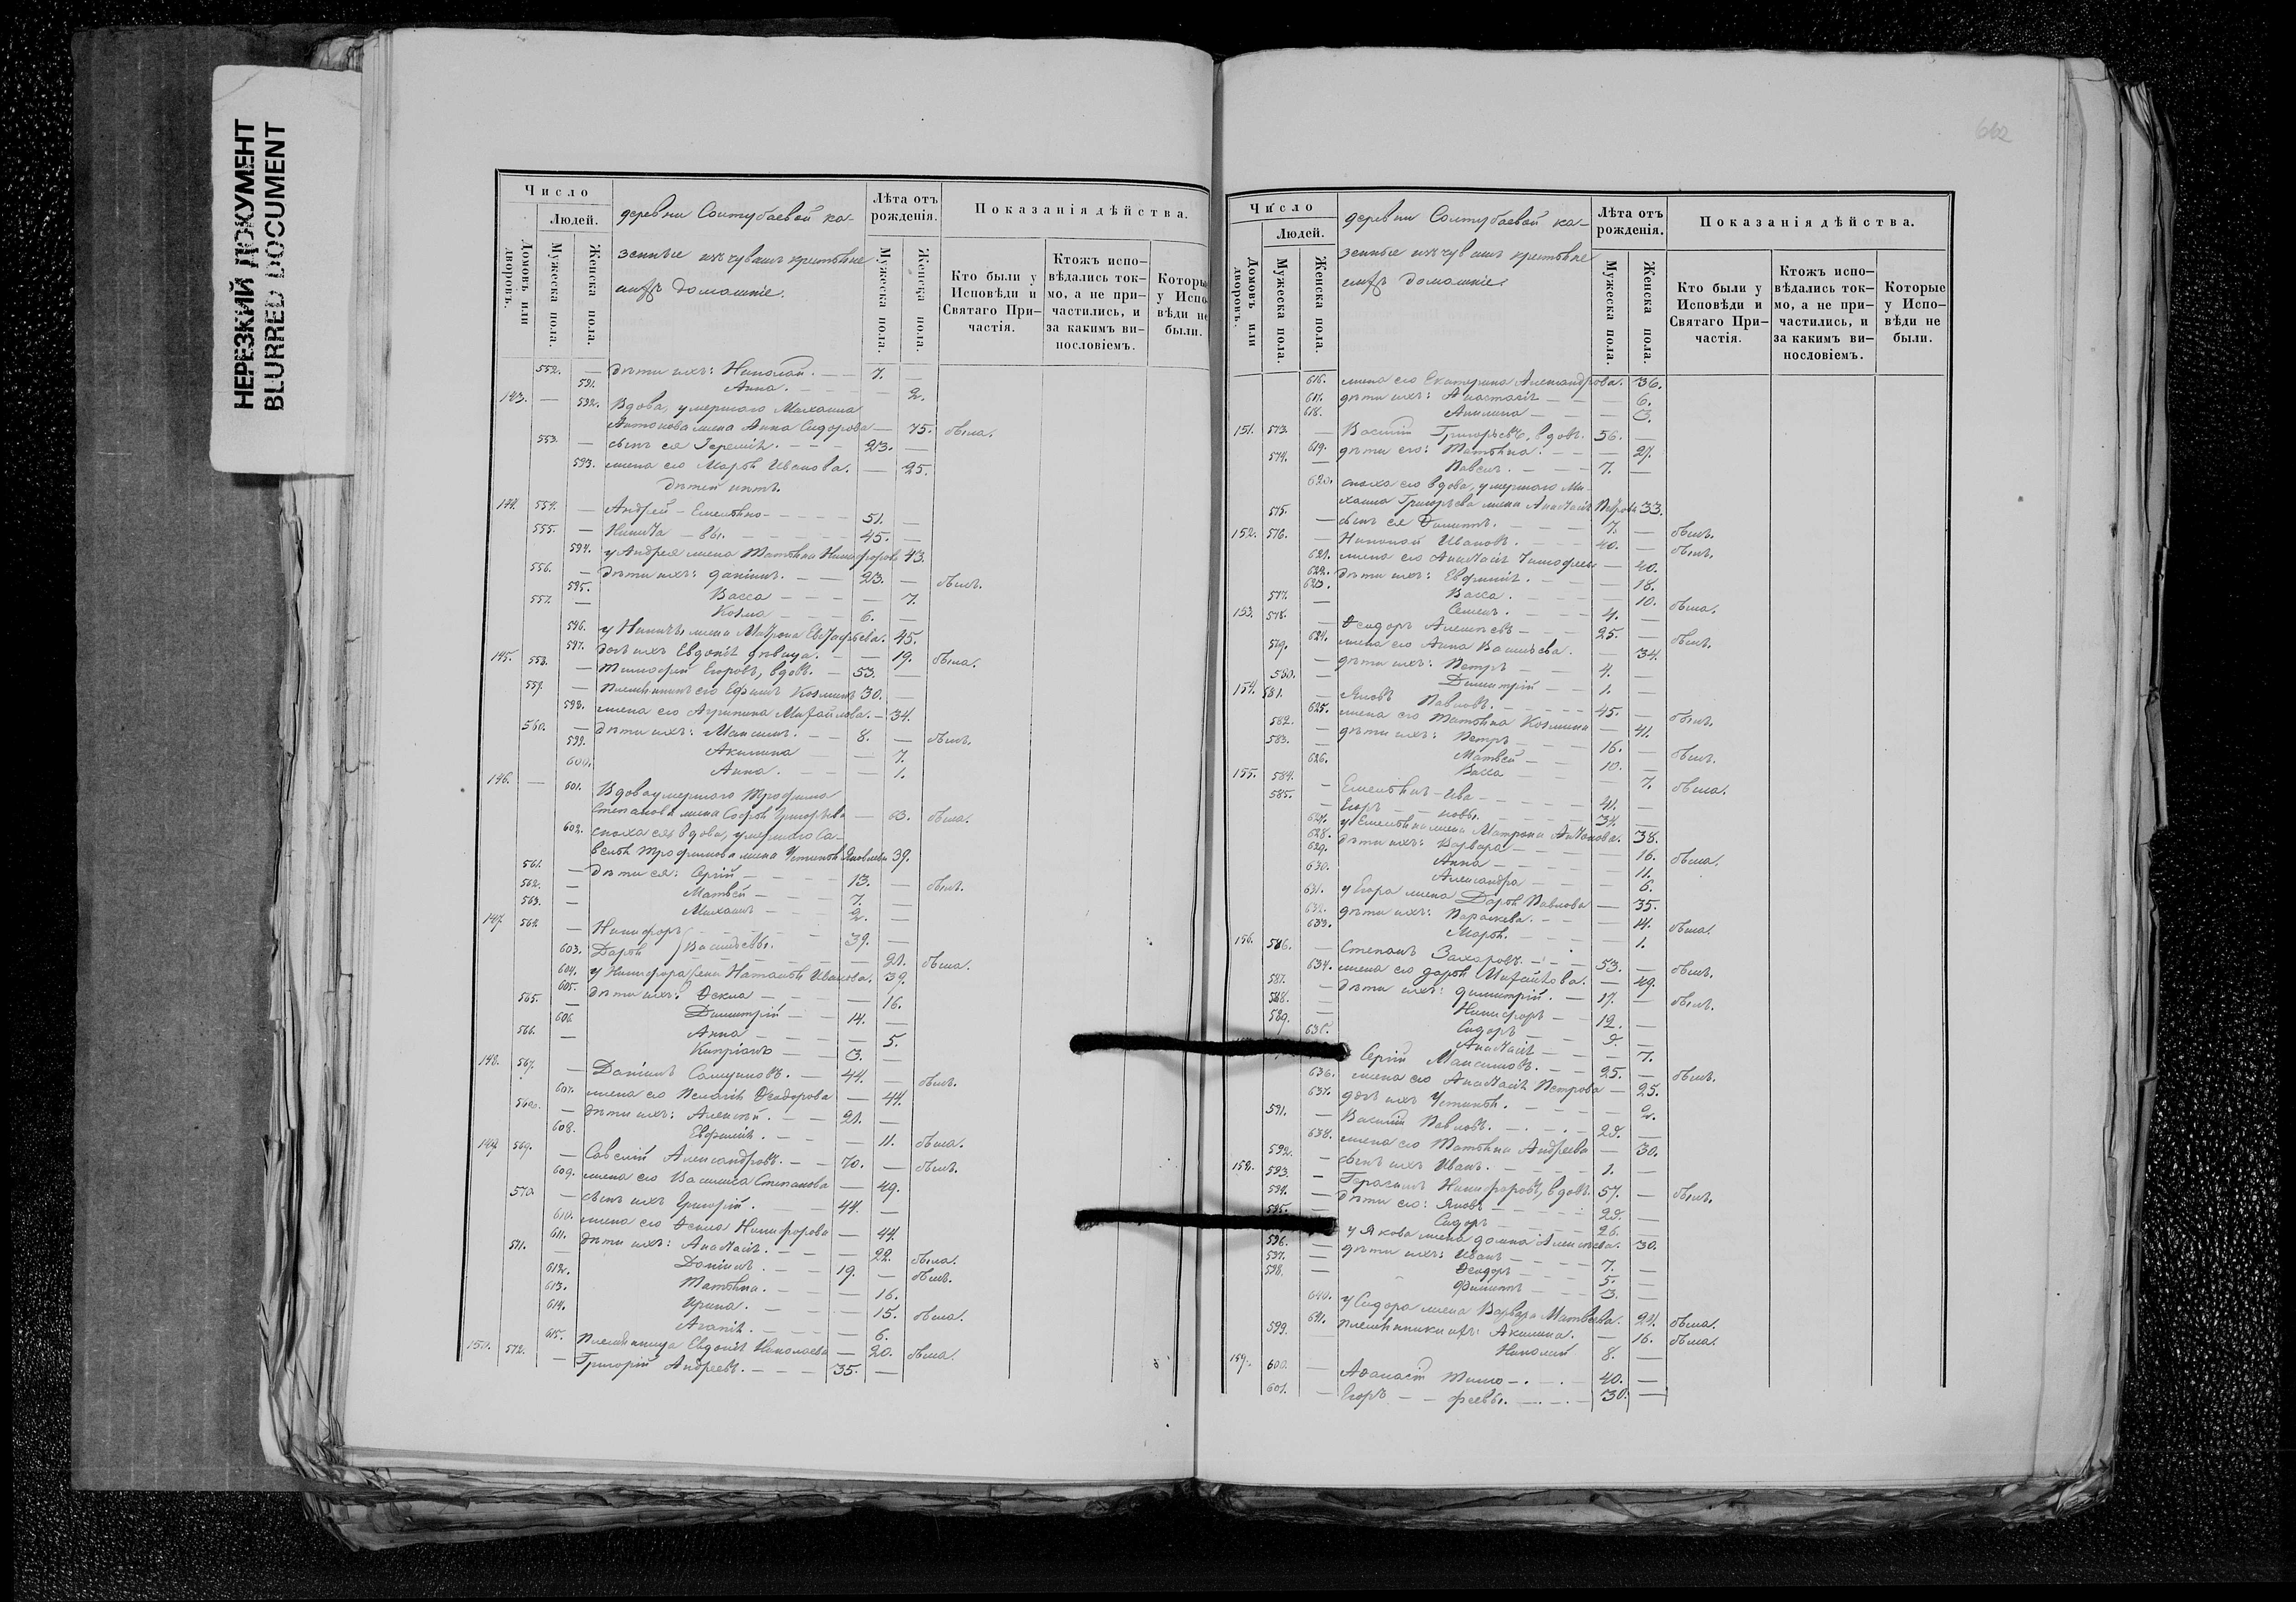 НЕРЕЗКИЙ ДОКУМЕНТ
BLURRED DOCUMENT
662
Число
Людей.
Домовъ или дворовъ.
Мужеска пола.
Женска пола.
деревни Соитубаевой ка-
зенные изъ чувашъ крестьяне
и ихъ домашніе.
Лѣта отъ рожденія.
Мужеска пола.
Женска пола.
Показанія дѣйства.
Кто были у Исповѣди и Святаго Причастія.
Ктожъ исповѣдались токмо, а не причастились, и за какимъ винословіемъ.
Которые у Исповѣди не были.
552. — дѣти ихъ: Николай. — 7. —
591. Анна. — — 2.
143. — 592. Вдова, умершаго Михаила
Антонова жена Анна Сидорова — 75. была.
553. — сынъ ея Іеремій. — 23. —
593. жена его Марѳа Иванова. — 25.
дѣтей нѣтъ.
144. 554. — Андрей — Емельяно- — 51. —
555. — Никита — вы. — 45. —
594. у Андрея жена Татьяна Никифорова 43.
556. — дѣти ихъ: Даніилъ. — 23. — былъ.
595. Васса — — 7.
557. — Козма — 6. —
596. у Никиты жена Матрона Евстафьева. 45.
597. дочь ихъ Евдокія дѣвица. — — 19. была.
145. 558. — Тимофей Егоровъ, вдовъ. — 53. —
559. — племянникъ его Ефимъ Козминъ 30. —
598. жена его Агрипина Михайлова. — 34.
560. — дѣти ихъ: Максимъ. — 8. — былъ.
599. Акилина — — 7.
600. Анна. — — 1.
146. — 601. Вдова умершаго Трофима
Степанова жена Софья Григорьева — 63. была.
602. сноха ея вдова, умершаго Са-
велья Трофимова жена Устинья Яковлева 39.
561. — дѣти ея: Сергій — 13. — былъ.
562. — Матвей — 7. —
563. — Михаилъ — 2. —
147. 564. — Никифоръ — 39. —
603. Дарья Васильевы. — 21. была.
604. у Никифора жена Наталья Иванова. 39.
605. дѣти ихъ: Ѳекла — — 16.
565. — Димитрій — 14. —
606. Анна — — 5.
566. — Кипріанъ — 3. —
148. 567. — Даніилъ Самуиловъ. — 44. — былъ.
607. жена его Пелагія Ѳеодорова — 44.
568. — дѣти ихъ: Алексѣй. — 21. —
608. Евфимія. — — 11. была.
149. 569. — Савелій Александровъ. — 70. — былъ.
609. жена его Василиса Степанова — 49.
570. — сынъ ихъ Григорій. — 44. —
610. жена его Ѳекла Никифорова — 44.
611. дѣти ихъ: Анастасія. — — 22. была.
571. — Даніилъ. — 19. — былъ.
612. Татьяна. — — 16.
613. Ирина. — — 15. была.
614. Агапія. — — 6.
615. племянница Евдокія Николаева — 20. была.
150. 572. — Григорій Андреевъ. — 35. —
Число
Людей.
Домовъ или дворовъ.
Мужеска пола.
Женска пола.
деревни Соитубаевой ка-
зенные изъ чувашъ крестьяне
и ихъ домашніе.
Лѣта отъ рожденія.
Мужеска пола.
Женска пола.
Показанія дѣйства.
Кто были у Исповѣди и Святаго Причастія.
Ктожъ исповѣдались токмо, а не причастились, и за какимъ винословіемъ.
Которые у Исповѣди не были.
616. жена его Екатерина Александрова. 36.
617. дѣти ихъ: Анастасія — — 6.
618. Акилина — — 3.
151. 573. — Василій Григорьевъ, вдовъ. 56. —
619. дѣти его: Татьяна. — — 27.
574. — Павелъ. — 7. —
620. сноха его вдова, умершаго Ми-
хаила Григорьева жена Анастасія Петрова 33.
575. — сынъ ея Филиппъ. — 7. — былъ.
152. 576. — Николай Ивановъ. — 40. — былъ.
621. жена его Анастасія Тимофеева — 40.
622. дѣти ихъ: Евфимія. — — 18.
623. Васса. — — 10. была.
577. — Семенъ. — 4. —
153. 578. — Ѳеодоръ Алексѣевъ — 25. — былъ.
624. жена его Анна Васильева. — 34.
579. — дѣти ихъ: Петръ — 4. —
580. — Димитрій — 1. —
154. 581. — Яковъ Павловъ. — 45. — былъ.
625. жена его Татьяна Козмина — 41.
582. — дѣти ихъ: Петръ — 16. — былъ.
583. — Матвей — 10. —
626. Васса — — 7. была.
155. 584. — Емельянъ — Ива- — 41. —
585. — Егоръ — новы. — 34. —
627. у Емельяна жена Матрона Антонова. 38.
628. дѣти ихъ: Варвара — — 16. была.
629. Анна — — 11.
630. Александра — — 6.
631. у Егора жена Дарья Павлова — 35.
632. дѣти ихъ: Параскева. — — 14. была.
633. Марѳа. — — 1.
156. 586. — Степанъ Захаровъ. — 53. — былъ.
634. жена его Дарья Михайлова. — 49.
587. — дѣти ихъ: Димитрій. — 17. — былъ.
588. — Никифоръ — 12. —
589. — Сидоръ — 9. —
635. Анастасія — — 7.
Сергій Максимовъ. — 25. — былъ.
636. жена его Анастасія Петрова — 25.
637. дочь ихъ Устинья. — — 2.
591. — Василій Павловъ. — 28. —
638. жена его Татьяна Андреева — 30.
592. — сынъ ихъ Иванъ. — 1. —
158. 593. — Герасимъ Никифоровъ, вдовъ. 57. — былъ.
594. — дѣти его: Яковъ — 28. —
595. — Сидоръ — 26. —
у Якова жена Домна Алексѣева. 30.
596. — дѣти ихъ: Иванъ — 7. —
597. — Ѳеодоръ — 5. —
598. — Филиппъ — 3. —
640. у Сидора жена Варвара Матвеева. 24. была.
641. племянники ихъ: Акилина. — 16. была.
599. Николай 8. —
159. 600. — Аѳанасій Тимо- — 40. —
601. — Егоръ — феевы. — 30. —